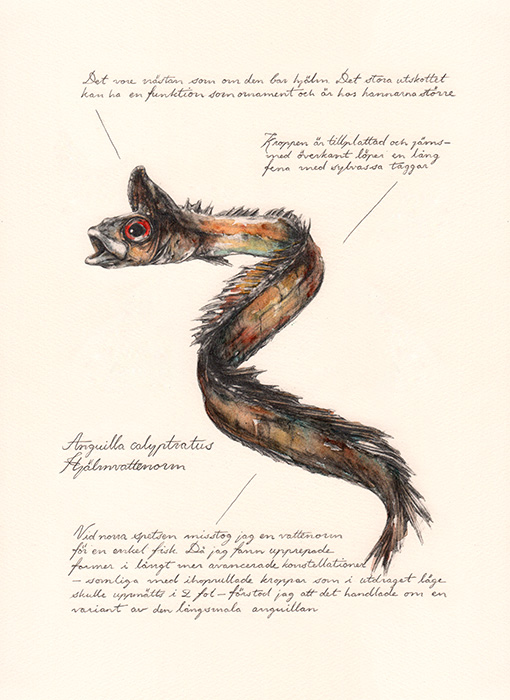 Det vore nästan som om den bar hjälm. Det stora utskottet
kan ha en funktion som ornament och är hos hannarna större
Kroppen är tillplattad och jäms-
med överkant löper en lång
fena med sylvassa taggar
Anguilla calyptratus
Hjälmvattenorm
Vid norra spetsen misstog jag en vattenorm
för en enkel fisk. Då jag fann upprepade
former i långt mer avancerade konstellationer
– somliga med ihoprullade kroppar som i utdraget läge
skulle uppmätts i 2 fot – förstod jag att det handlade om en
variant av den långsmala anguillan